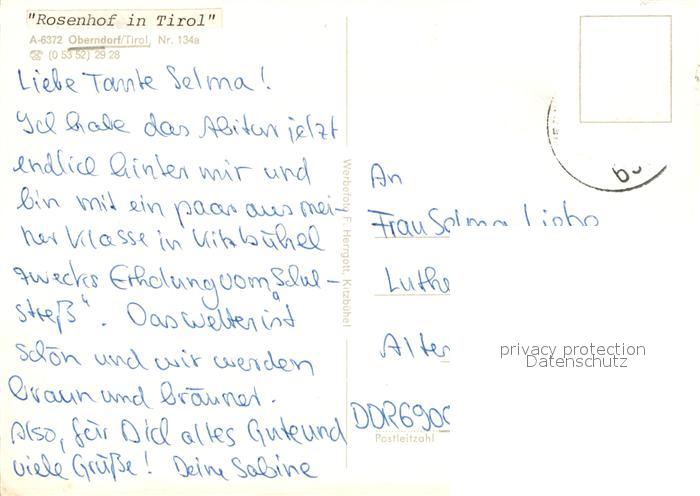 "Rosenhof in Tirol"
A-6372 Oberndorf/Tirol, Nr. 134a
☎ (0 53 52) 29 28
Liebe Tante Selma!
Ich habe das Abitur jetzt
endlich hinter mir und
bin mit ein paar aus mei-
ner Klasse in Kitzbühel
zwecks Erholung vom „Schul-
streß“. Das Wetter ist
schön und wir werden
braun und bräuner.
Also, für Dich alles Gute und
viele Grüße! Deine Sabine
Werbefoto F. Herrgott, Kitzbühel
An
Frau Selma
Luthe
Alter
DDR 690
Postleitzahl
privacy protection
Datenschutz